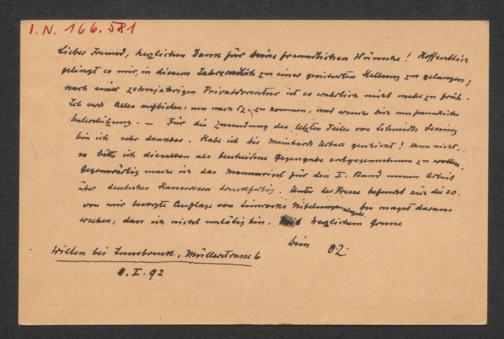 I.N. 166.581
Lieber Freund, herzlichen Dank für deine freundlichen Wünsche! Hoffentlich
gelingt es mir, in diesem Jahre endlich zu einer gesicherten Stellung zu gelangen,
nach einer zehnjährigen Privatdozentur ist es wahrlich nicht mehr zu früh.
Ich werde Alles aufbieten, um nach Cz. zu kommen, und um deine freundliche
Unterstützung. — Für die Zusendung des letzten Teiles von Schmidts Lessing
bin ich sehr dankbar. Habe ich die Meinhard geschickt? Wenn nicht,
so bitte ich dieselben als bescheidene Gegengabe entgegenzunehmen zu wollen.
Gegenwärtig mache ich das Manuscript für den I. Band meiner Arbeit
über deutsches druckfertig. Unter der Presse befindet sich die 20.
von mir besorgte Auflage von Simrocks Nibelungen. Du magst daraus
ersehen, dass ich nicht untätig bin. Mit herzlichem Grusse
dein OZ.
Wilten bei Innsbruck, Müllerstrasse 6
8. I. 92